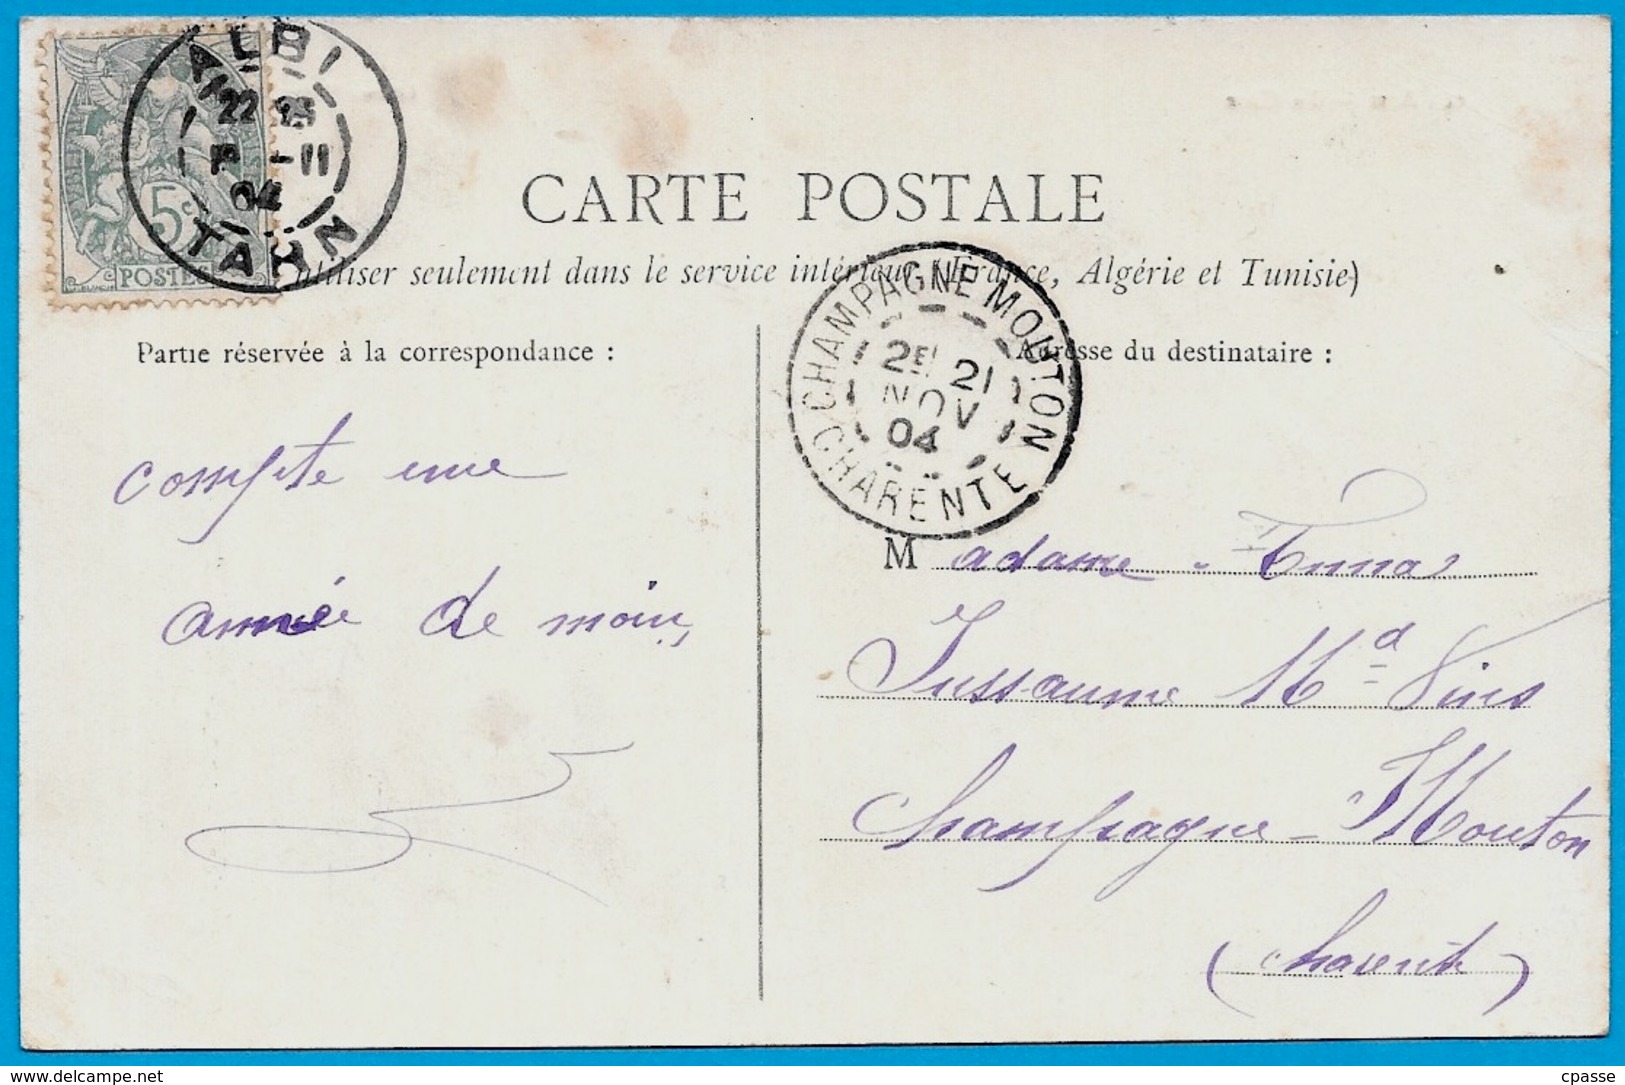 ALBI
22 25
11
04
TARN
5c
POSTES
CARTE POSTALE
utiliser seulement dans le service intérieur (France, Algérie et Tunisie)
CHAMPAGNE MOUTON
25 21
NOV
04
CHARENTE
Partie réservée à la correspondance :
Adresse du destinataire :
compte une
année de moins
Madame
Jussaume Md Vins
Champagne-Mouton
(Charente)
cpasse
delcampe.net